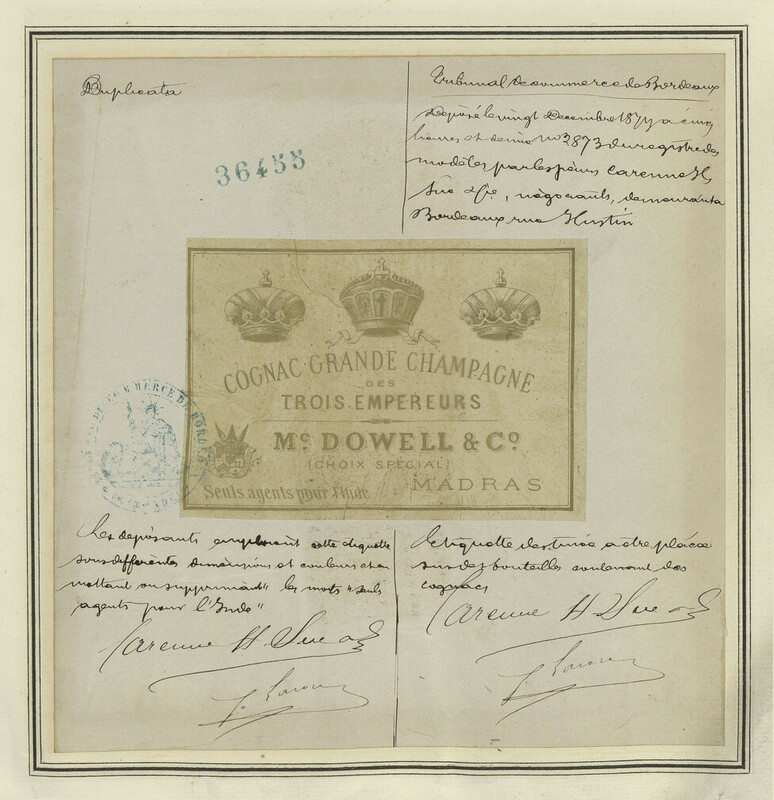 Duplicata
36455
Tribunal de commerce de Bordeaux
Déposé le vingt Décembre 1877 à cinq
heures et demie no 2873 du registre des
modèles par les sieurs Carenne H,
Suc & Cie, négociants, demeurant à
Bordeaux rue Hustin
COGNAC GRANDE CHAMPAGNE
DES
TROIS EMPEREURS
Mc DOWELL & Co
(CHOIX SPÉCIAL)
Seuls agents pour l'Inde
MADRAS
COMMERCE DE BORDEAUX
Les déposants emploient cette étiquette
sous différentes dimensions et couleurs et en
mettant ou supprimant "les mots "seuls
agents pour l'Inde"
Carenne H Suc
L'étiquette destinée à être placée
sur des bouteilles contenant des
cognacs
Carenne H Suc